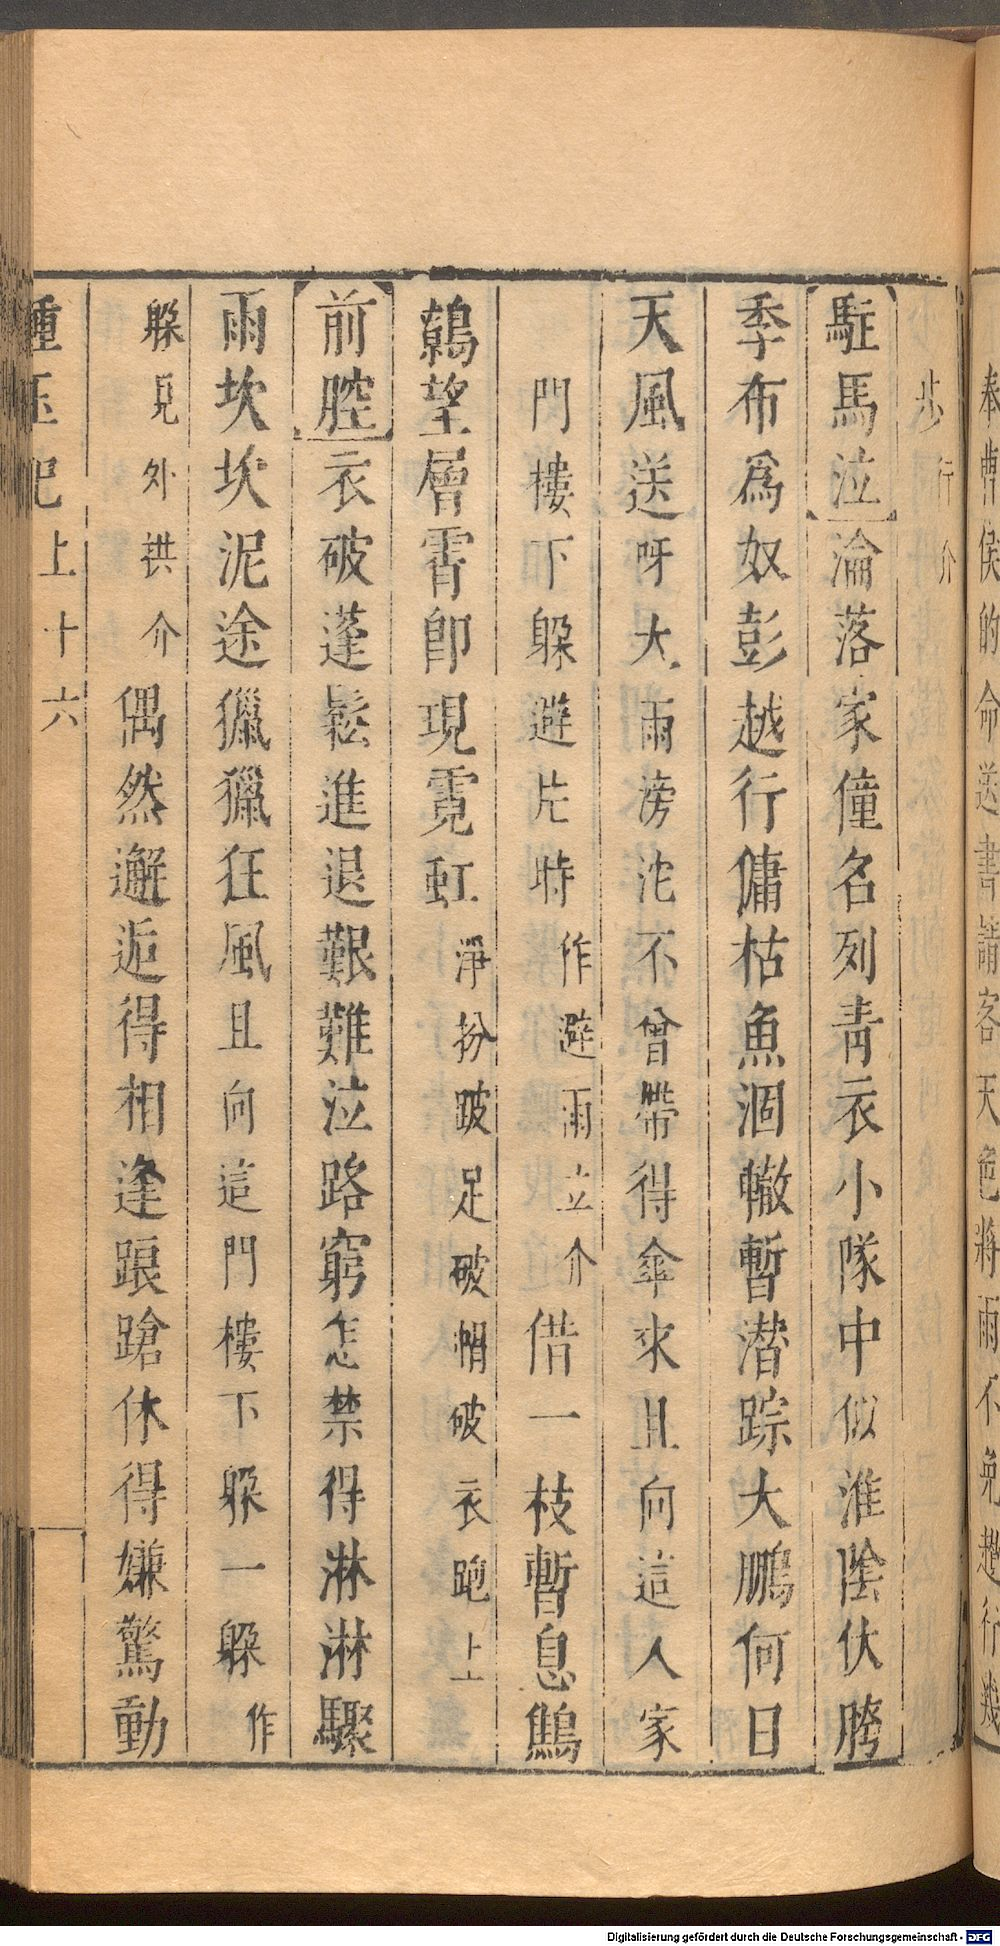 奉曹侯的命送書請客天色將雨不免趲行幾
步行介
駐馬泣淪落家僮名列靑衣小隊中似淮陰伏胯
季布爲奴彭越行傭枯魚涸轍暫潜踪大鵬何日
天風送呀大雨滂沱不曾帶得傘來且向這人家
門樓下躱避片時作避雨立介借一枝暫息鷦
鷯望層霄卽現霓虹淨扮跛足破帽破衣跑上
前腔衣破蓬鬆進退艱難泣路窮怎禁得淋淋驟
雨坎坎泥途獵獵狂風且向這門樓下躱一躱作
躱見外拱介偶然邂逅得相逢踉蹌休得嫌驚動
種玉記上十六
Digitalisierung gefördert durch die Deutsche Forschungsgemeinschaft - DFG